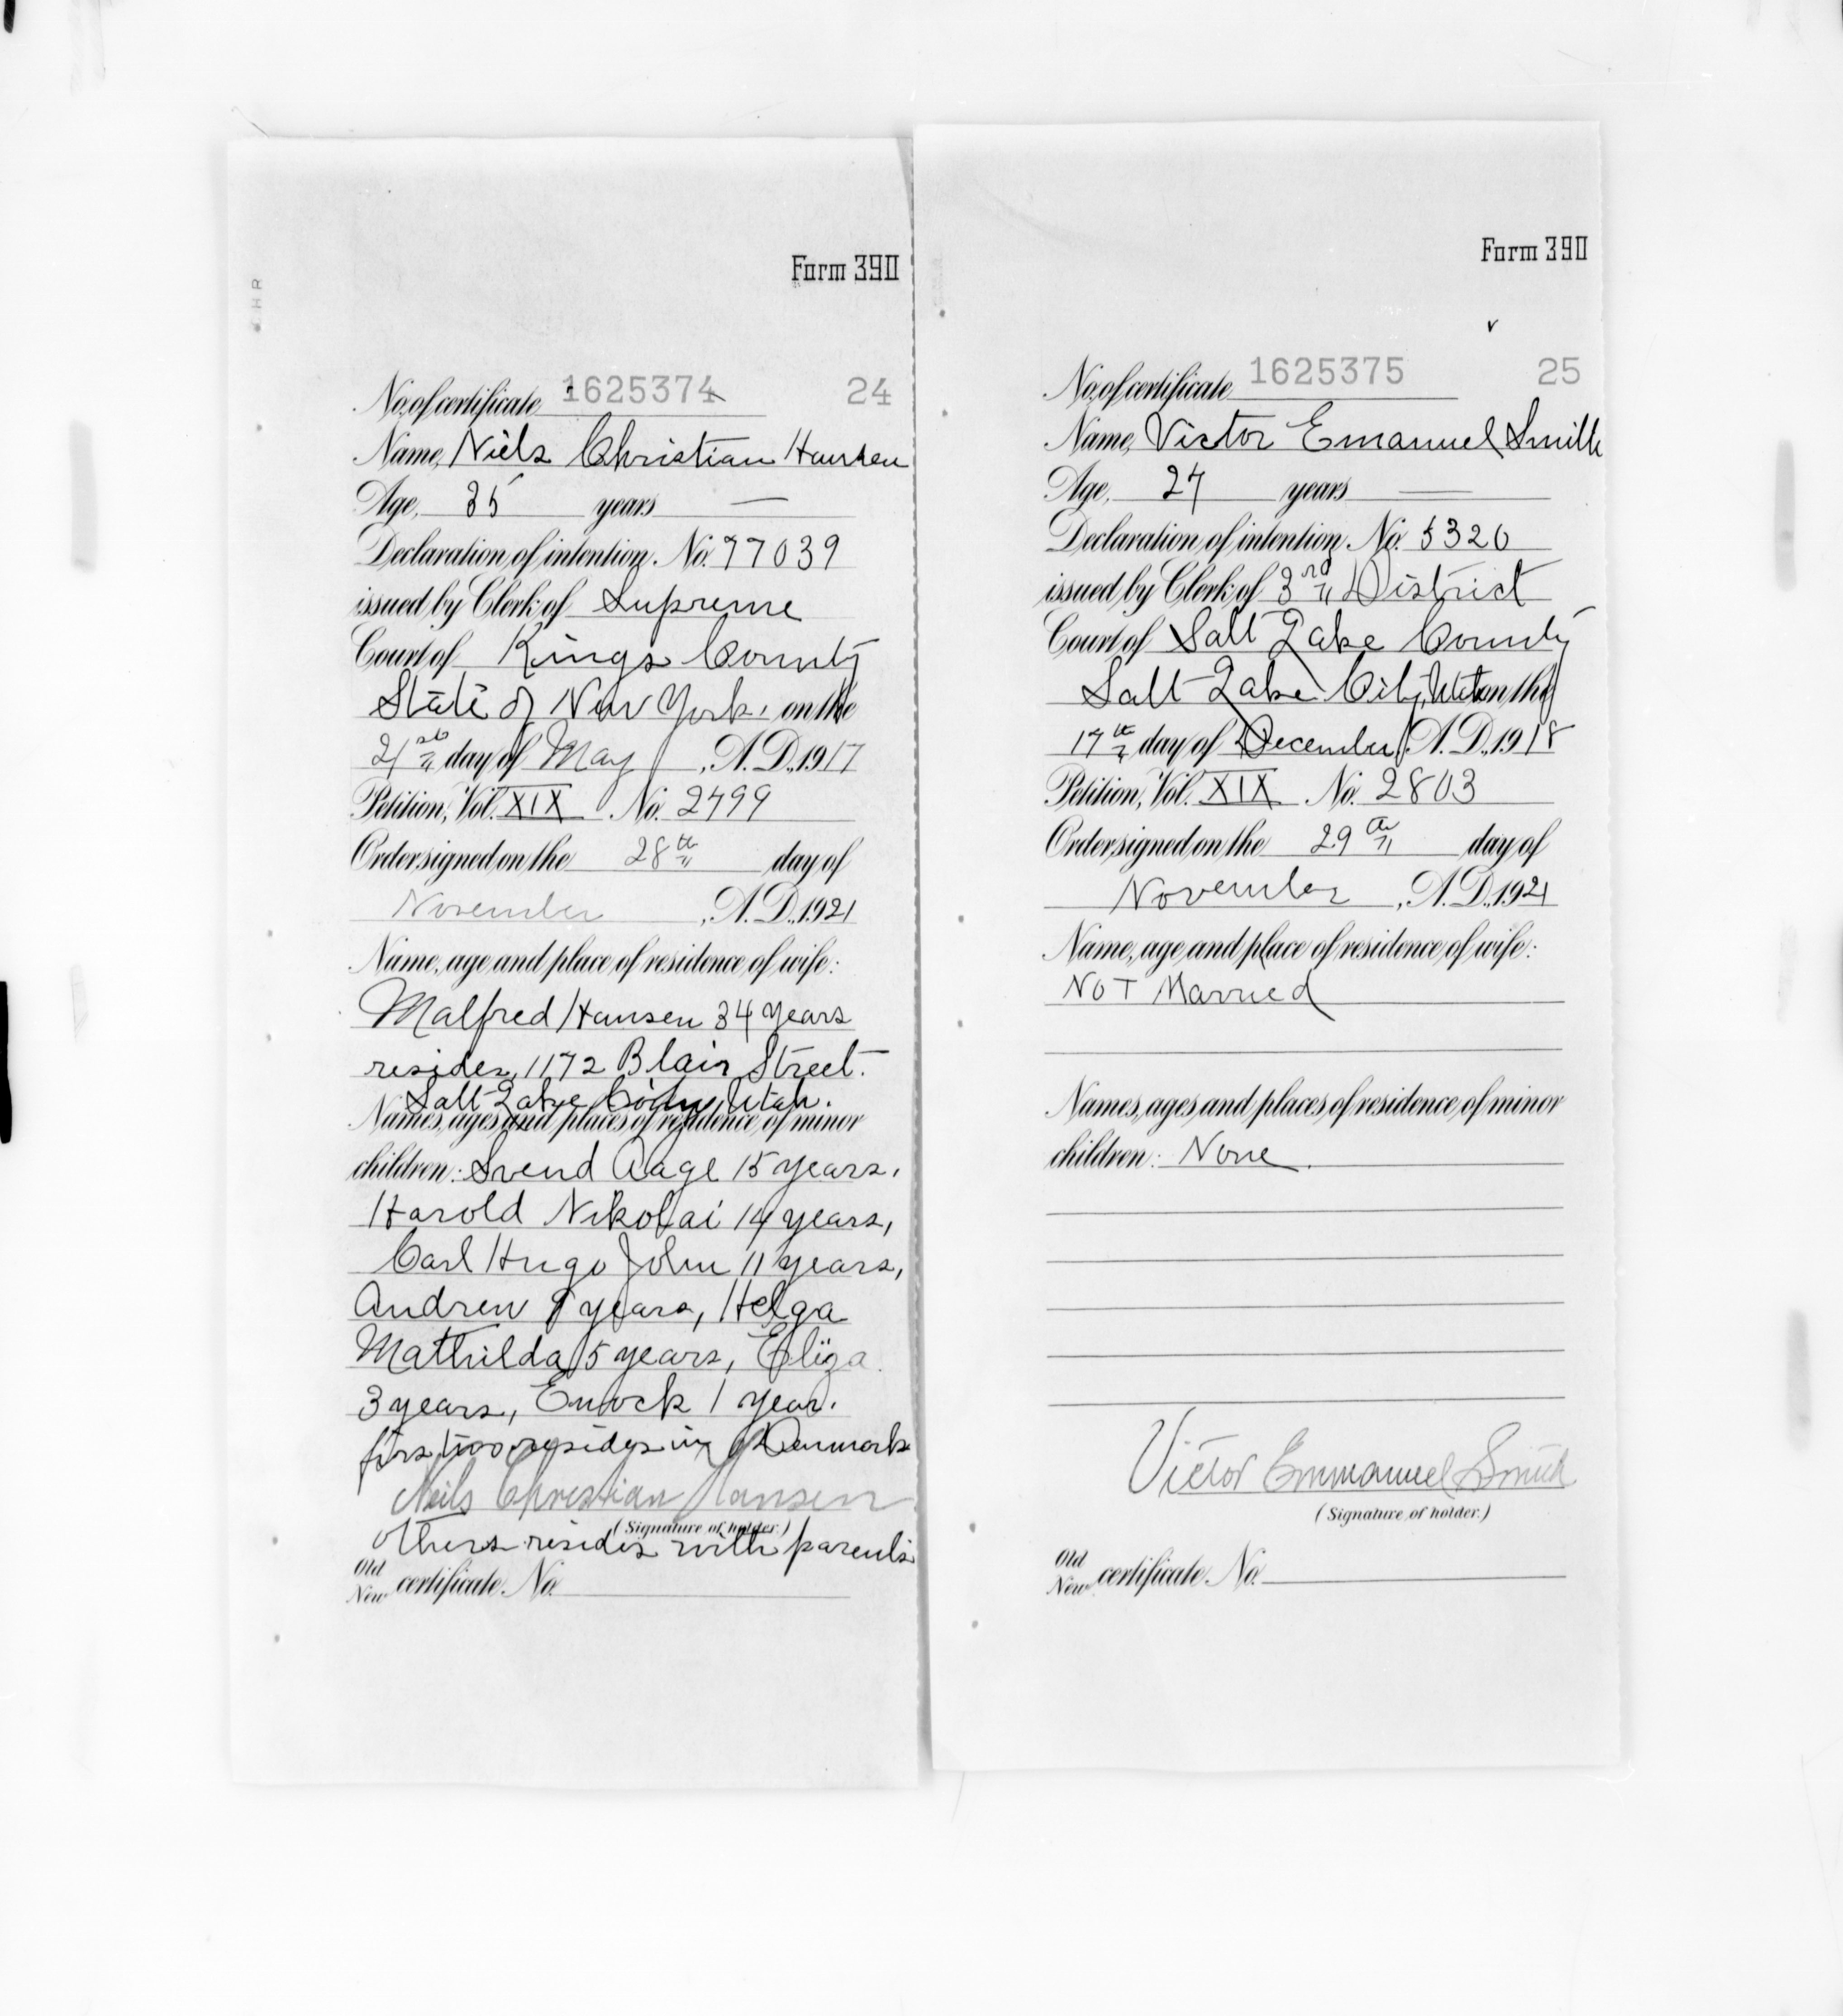 Form 390
No. of certificate 1625374 24
Name, Niels Christian Hansen
Age, 35 years —
Declaration of intention No. 77039
issued by Clerk of Supreme
Court of Kings County
State of New York. on the
21st day of May, A. D. 1917
Petition, Vol. XIX No. 2799
Order signed on the 28th day of
November, A. D. 1921
Name, age and place of residence of wife:
Malfred Hansen 34 years
resides, 1172 Blair Street.
Salt Lake City, Utah.
Names, ages and places of residence of minor
children: Svend Aage 15 years,
Harold Nikolai 14 years,
Carl Hugo John 11 years,
Andrew 9 years, Helga
Mathilda 5 years, Eliza
3 years, Enock 1 year.
first two resides in Denmark
Neils Christian Hansen
(Signature of holder.)
Others resides with parents
Old
New certificate No.
Form 390
No. of certificate 1625375 25
Name, Victor Emanuel Smith
Age, 27 years —
Declaration of intention No. 5320
issued by Clerk of 3rd District
Court of Salt Lake County
Salt Lake City, Utah on the
17th day of December, A. D. 1918
Petition, Vol. XIX No. 2803
Order signed on the 29th day of
November, A. D. 1921
Name, age and place of residence of wife:
Not Married
Names, ages and places of residence of minor
children: None.
Victor Emmanuel Smith
(Signature of holder.)
Old
New certificate No.